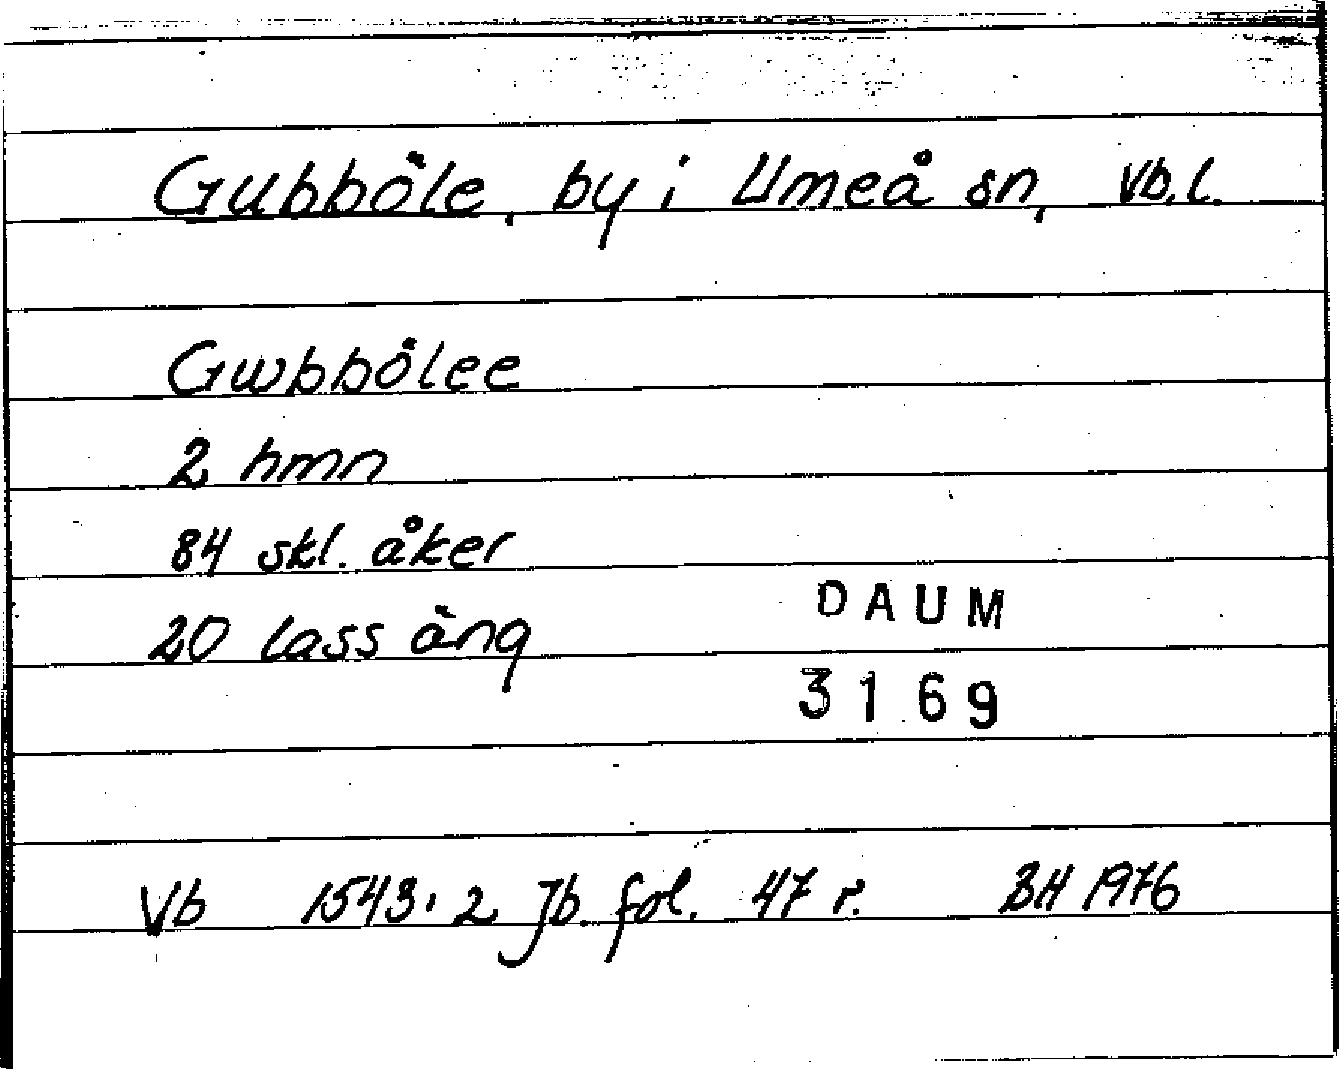 Gubböle, by i Umeå sn, Vb.l.
Gwbbölee
2 hmn
84 skl. åker
20 lass äng
DAUM
3169
Vb 1543:2 Jb. fol. 47 r. BH 1976